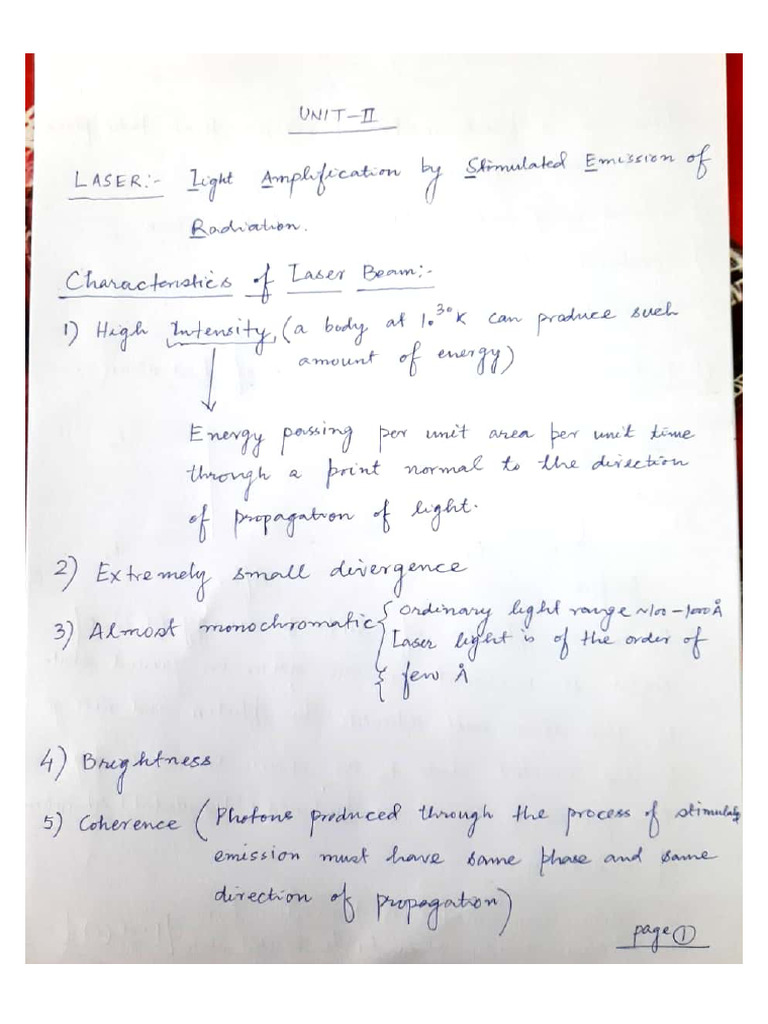 UNIT-II
LASER:- Light Amplification by Stimulated Emission of
Radiation.
Characteristics of Laser Beam:-
1) High Intensity, (a body at 10³⁰K can produce such
amount of energy)
Energy passing per unit area per unit time
through a point normal to the direction
of propagation of light.
2) Extremely small divergence
3) Almost monochromatic { Ordinary light range ~100-1000Å
Laser light is of the order of
few Å
4) Brightness
5) Coherence (Photons produced through the process of
emission must have same phase and same
direction of propagation)
page 1